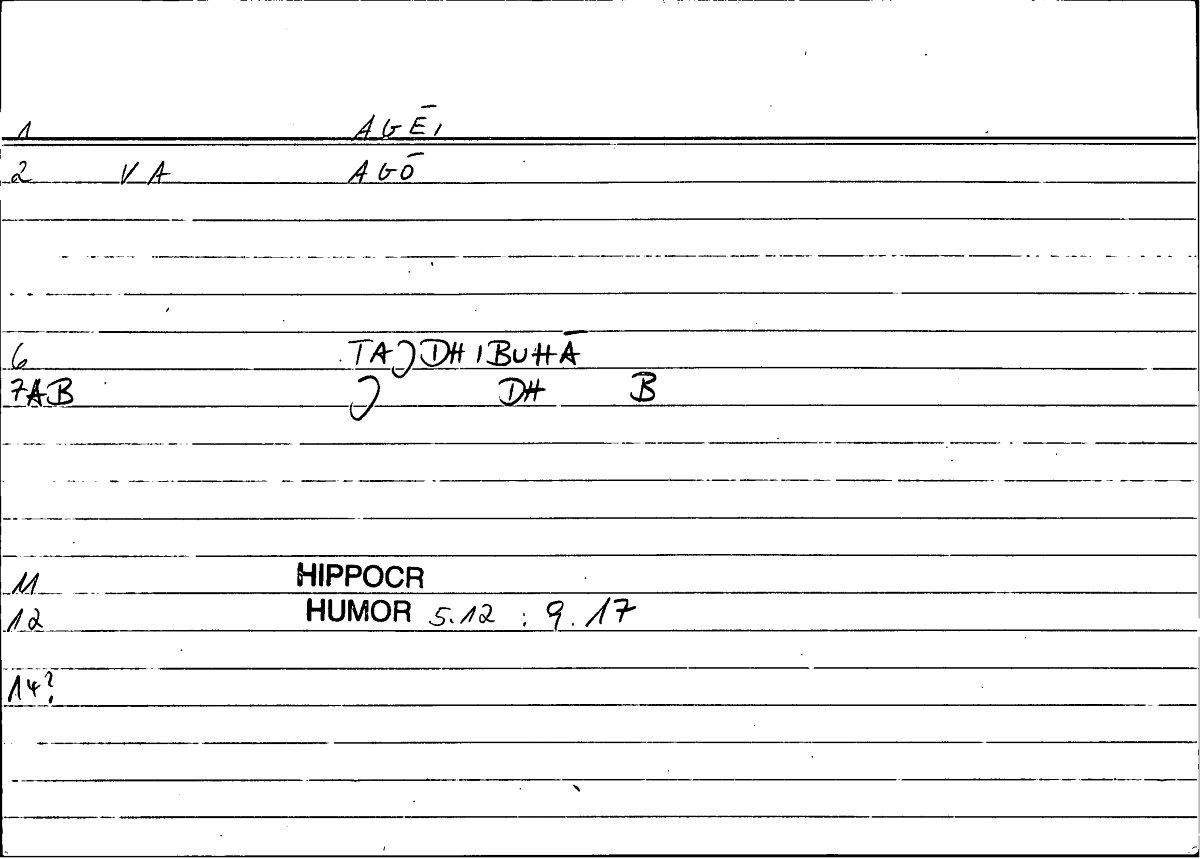 1 AGĒ,
2 VA AGŌ
6 TAJDHIBUHĀ
7AB J DH B
11 HIPPOCR
12 HUMOR 5.12 : 9.17
14?